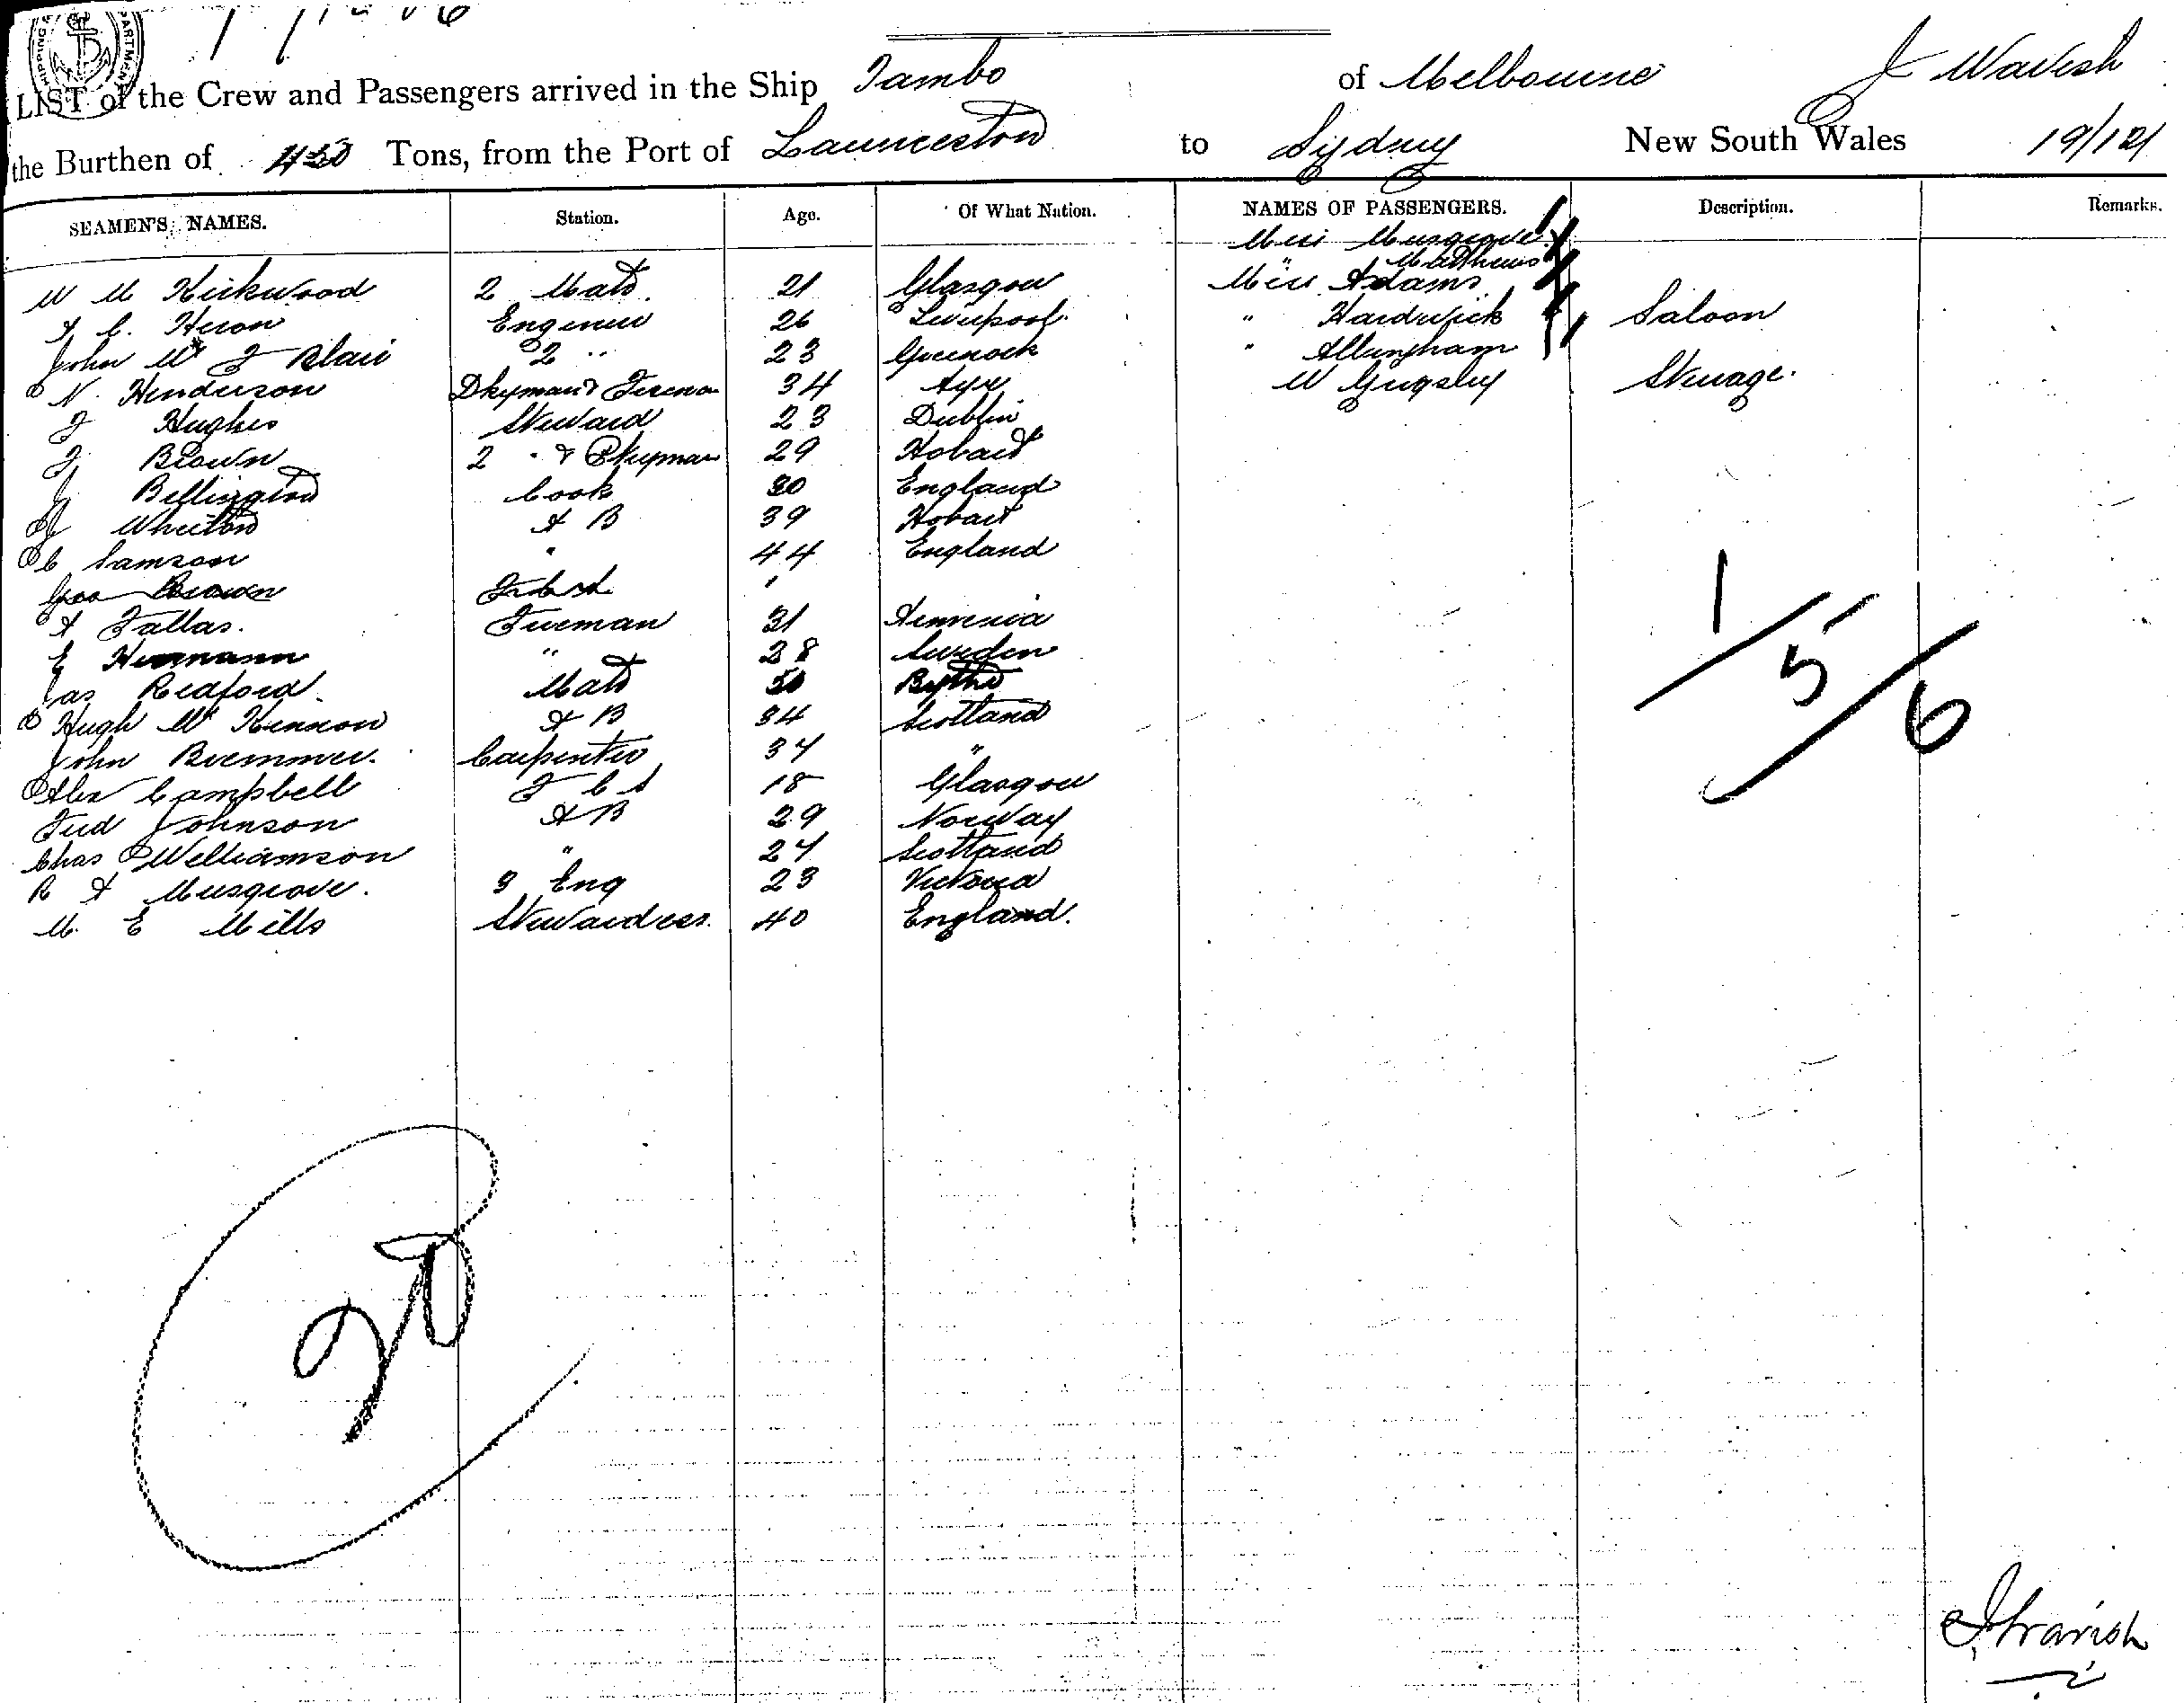 LIST of the Crew and Passengers arrived in the Ship Tambo of Melbourne J Wavish
the Burthen of 450 Tons, from the Port of Launceston to Sydney New South Wales 19/12/
SEAMEN'S NAMES. Station. Age. Of What Nation. NAMES OF PASSENGERS. Description. Remarks.
Musgrove
" Matthews
W M Kirkwood 2 Mate 21 Glasgow Miss Adams
Heron Engineer 26 Liverpool " Hardwick Saloon
John Mc J Blair 2 " 23 Greenock " Allingham
N. Henderson Dkyman & Fireman 34 Ayr W Steerage.
J Hughes Steward 23 Dublin
J Brown 2 " & Dkyman 29 Hobart
J Cook 30 England
Wheeton A B 39 Hobart
C Samson " 44 England
Geo Brown
A Fallas. Fireman 31 Armenia
E Hermann " 28 Sweden
Jas Redford Mate 50
Hugh Mc Kinnon A B 34 Scotland
John Bremmer. Carpenter 34 "
Alex Campbell F C S 18 Glasgow
Fred Johnson A B 29 Norway
Chas Williamson " 24 Scotland
R A Musgrove. 3 Eng 23 Victoria
M. E Mills Stewardess. 40 England.
1/5/6
20
J Wavish